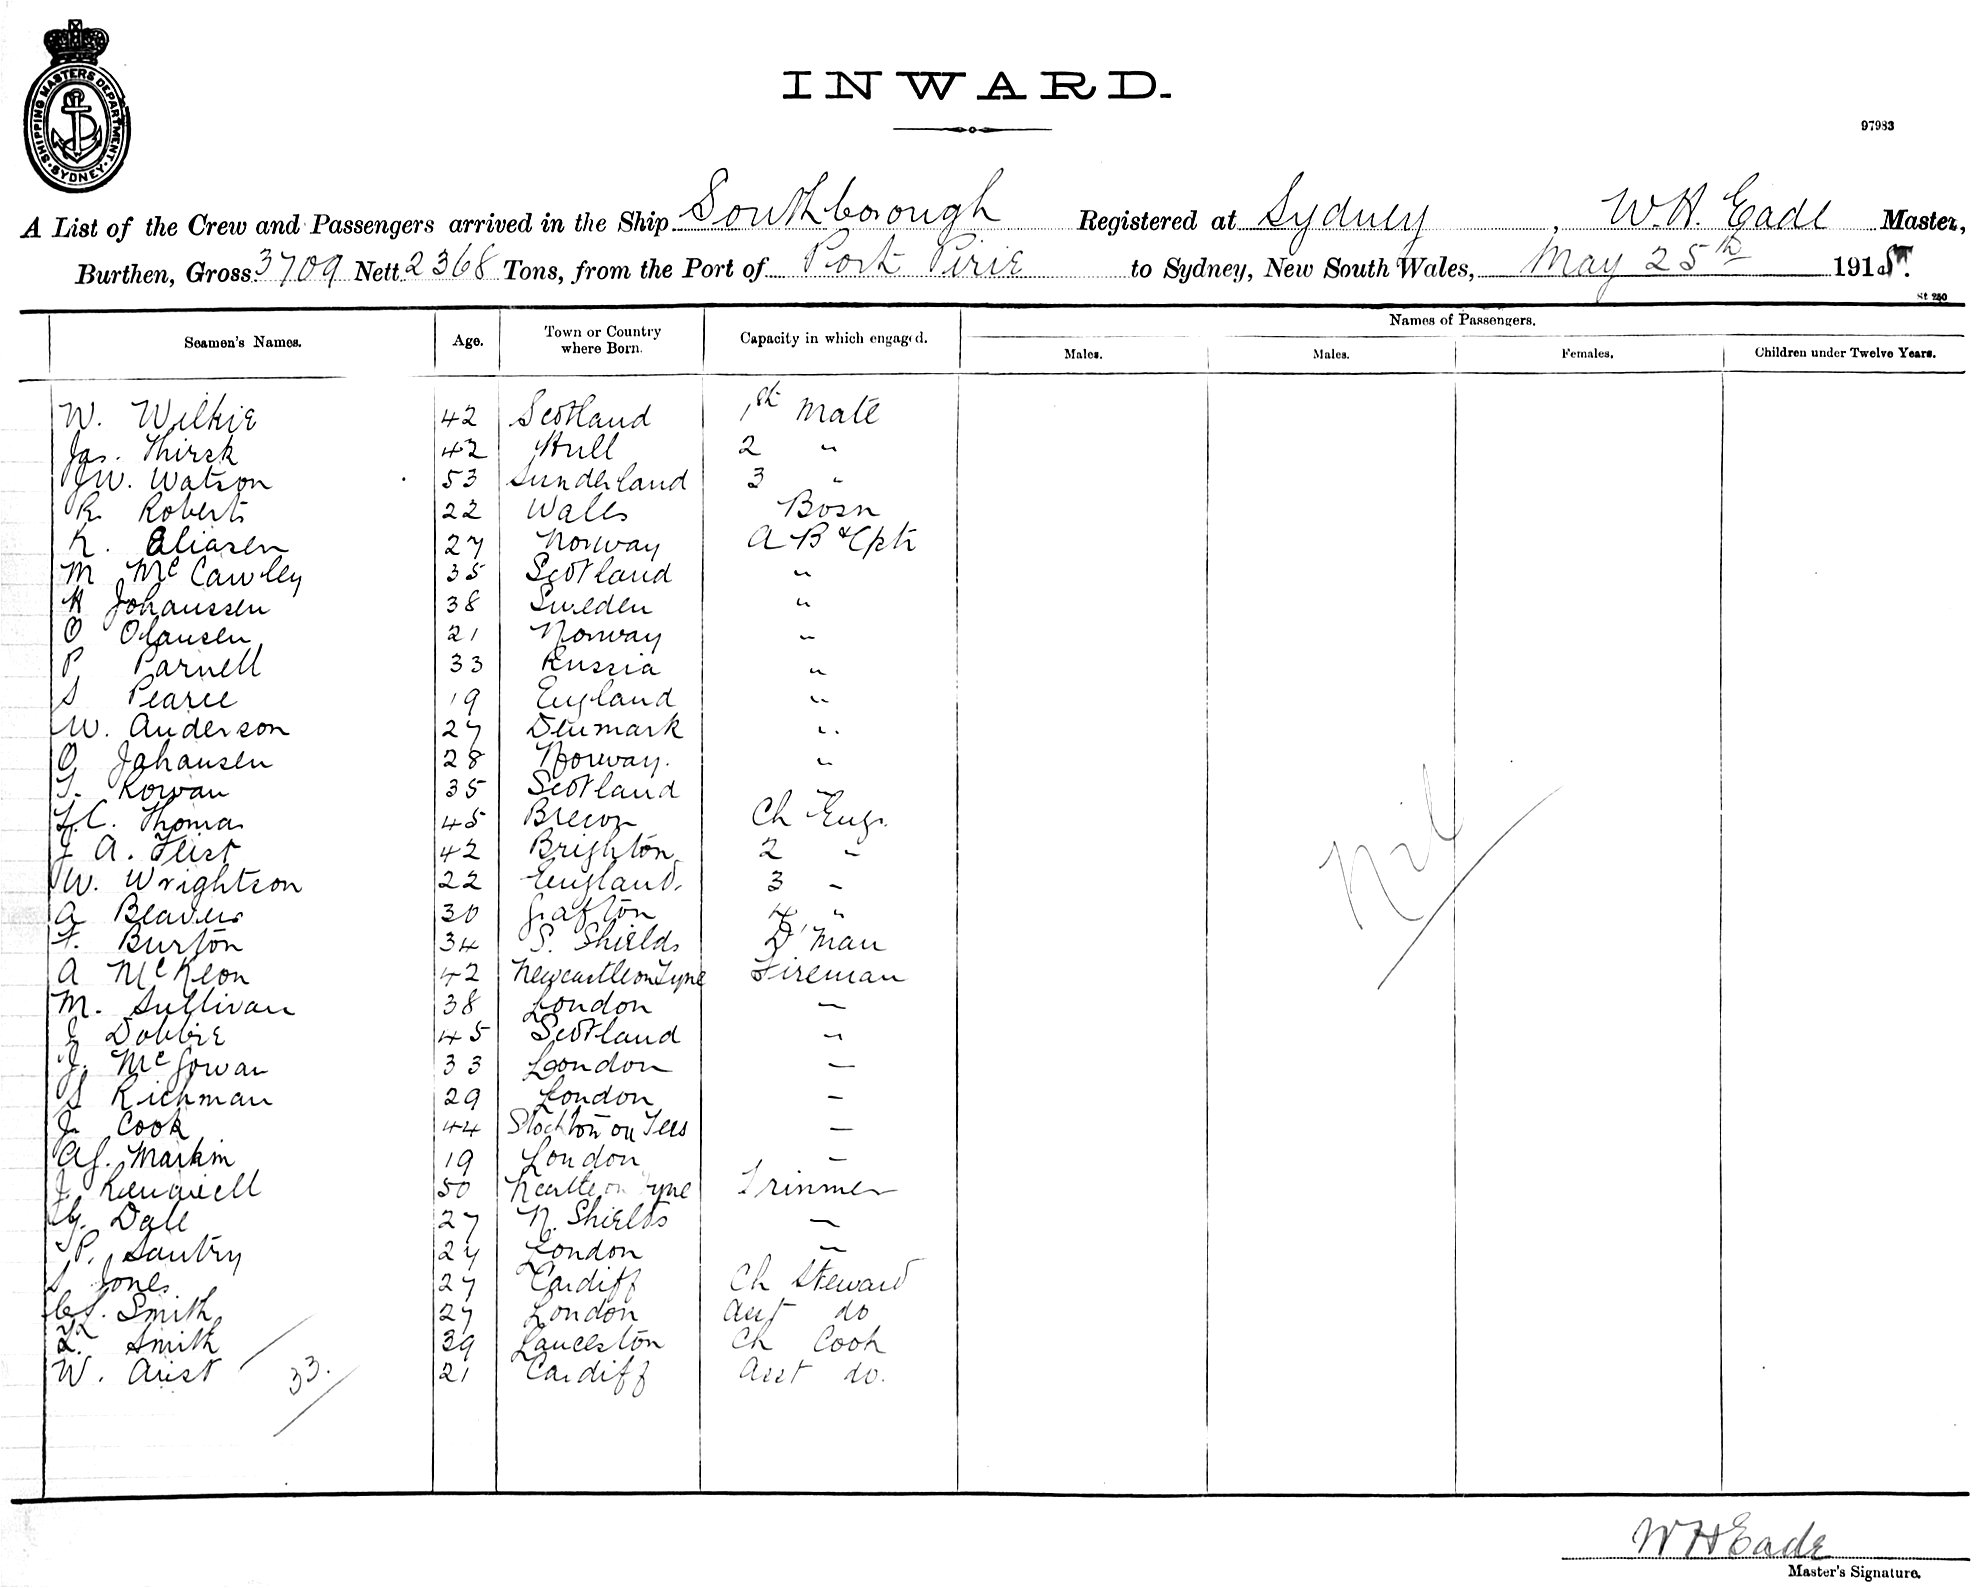 SHIPPING MASTERS DEPARTMENT · SYDNEY ·
INWARD.
97983
A List of the Crew and Passengers arrived in the Ship Southborough Registered at Sydney, W. H. Eade Master,
Burthen, Gross 3709 Nett 2368 Tons, from the Port of Port Pirie to Sydney, New South Wales, May 25th 1915.
St 250
Seamen's Names. Age. Town or Country where Born. Capacity in which engaged. Names of Passengers.
Males. Males. Females. Children under Twelve Years.
W. Wilkie 42 Scotland 1st Mate
Jas. Thirsk 42 Hull 2 "
J W. Watson 53 Sunderland 3 "
R. Roberts 22 Wales Bosn
K. Eliasen 27 Norway A B & Cptr
M McCawley 35 Scotland "
H Johanssen 38 Sweden "
O Olausen 21 Norway "
P Parnell 33 Russia "
S Pearce 19 England "
W. Anderson 27 Denmark "
O Johansen 28 Norway. "
T. Rowan 35 Scotland
L.C. Thomas 45 Brecon Ch Engr.
J A. Feist 42 Brighton 2 "
W. Wrightson 22 England. 3 "
A Beavers 30 Grafton 4 "
F. Burton 34 S. Shields D'Man
A McKeon 42 Newcastle on Tyne Fireman
M. Sullivan 38 London "
J Dobbie 45 Scotland "
J. McGowan 33 London "
S Richman 29 London "
J. Cook 44 Stockton on Tees "
A J. Markin 19 London "
J. 50 Ncastle on Tyne Trimmer
G. Dale 27 N. Shields "
P. Santry 24 London "
S Jones 27 Cardiff Ch Steward
Smith 27 London Asst do
L. Smith 39 Launceston Ch Cook
W. Aust 21 Cardiff Asst do.
33.
Nil
W H Eade
Master's Signature.